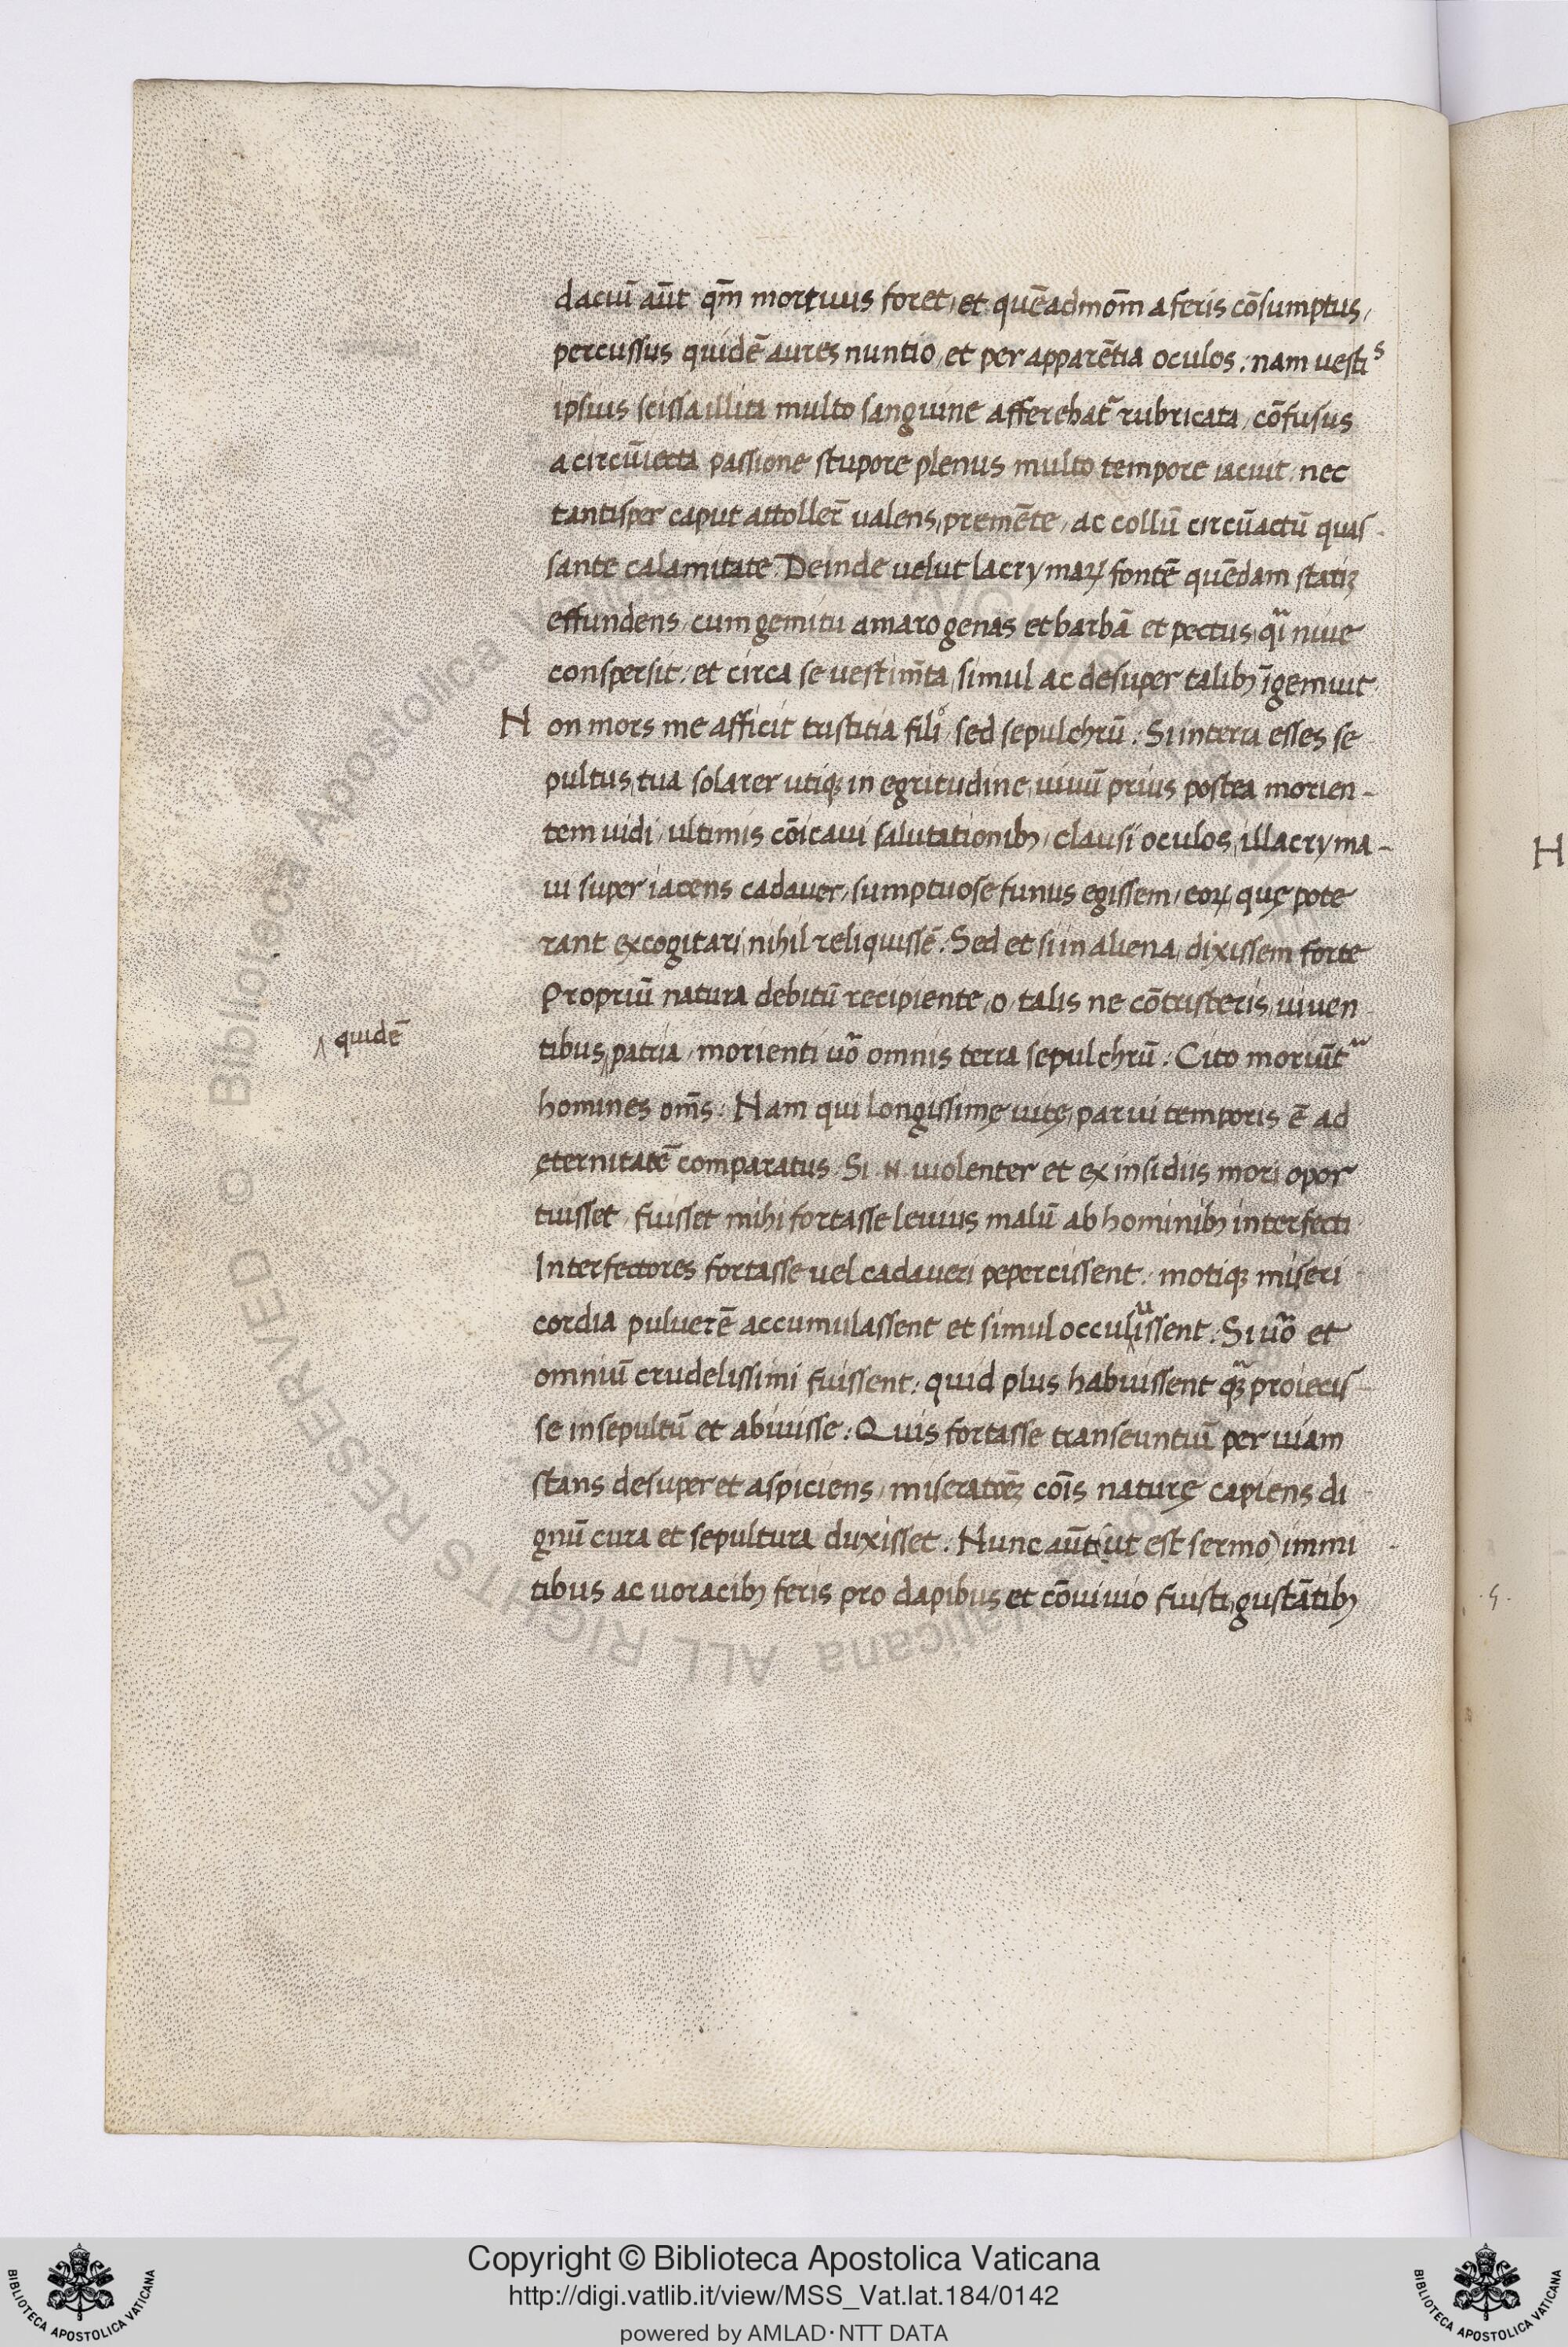 daciū aūt qm̄ mortuus foret, et quēadmōm a feris cōsumptus,
percussus quidē aures nuntio, et per apparētia oculos: nam uestis
ipsius scissa illiti multo sanguine afferebat᷑ rubricata, cōfusus
a circūiecta passione stupore plenus multo tempore iacuit, nec
tantisper caput attoller̄ ualens, premēte, ac collū circūactū quas-
sante calamitate. Deinde uelut lacrymaꝝ fontē quēdam statiꝫ
effundens, cum gemitu amaro genas et barbā et pectus, qi niue
conspersit, et circa se uestim̄ta, simul ac desuper talibꝫ īgemuit
Non mors me afficit tristitia filio, sed sepulchrū. Si in terra esses se
pultus, tua solarer utiqꝫ in egritudine, uiuū prius postea morien-
tem uidi, ultimis cōicaui salutationibꝫ, clausi oculos, illacryma-
ui super iacens cadauer, sumptuose funus egissem, eoꝝ, quę pote
rant excogitari, nihil reliquissē. Sed et si in aliena, dixissem forte
Propriū natura debitū recipiente, o, talis ne cōtristeris, uiuen
^ quidē
tibus^ patria, morienti uō omnis terra sepulchrū. Cito moriūt᷑
homines om̄s. Nam qui longissimę uitę, parui temporis ē ad
ęternitatē comparatus. Si .n. uiolenter et ex insidiis mori opor
tuisset, fuisset mihi fortasse leuius malū ab hominibꝫ interfecti
Interfectores fortasse uel cadaueri pepercissent. motiqꝫ miseri
cordia puluerē accumulassent et simul occuluissent. Si uō et
omniū crudelissimi fuissent: quid plus habuissent qꝫ proiecis-
se insepultū et abiuisse. Quis fortasse transeuntiū per uiam
stans desuper et aspiciens, cōis naturę capiens di
gnū cura et sepultura duxisset. Nunc aūt (ut est sermo) immi
tibus ac uoracibꝫ feris pro dapibus et cōuiuio fuisti, gustātibꝫ
H
.5.
Biblioteca Apostolica Vaticana ALL RIGHTS RESERVED ©
Copyright © Biblioteca Apostolica Vaticana
http://digi.vatlib.it/view/MSS_Vat.lat.184/0142
powered by AMLAD·NTT DATA
BIBLIOTECA APOSTOLICA VATICANA
BIBLIOTECA APOSTOLICA VATICANA